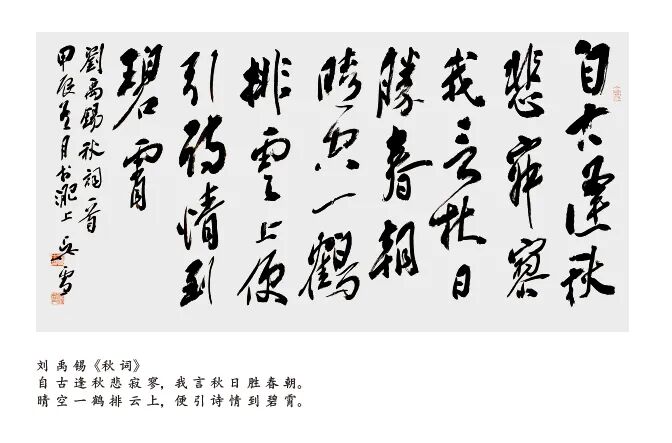 自古逢秋
悲寂寥
我言秋日
勝春朝
晴空一鶴
排雲上便
引詩情到
碧霄
劉禹錫秋詞一首
甲辰月书淝上 吴雪
刘禹锡《秋词》
自古逢秋悲寂寥，我言秋日胜春朝。
晴空一鹤排云上，便引诗情到碧霄。